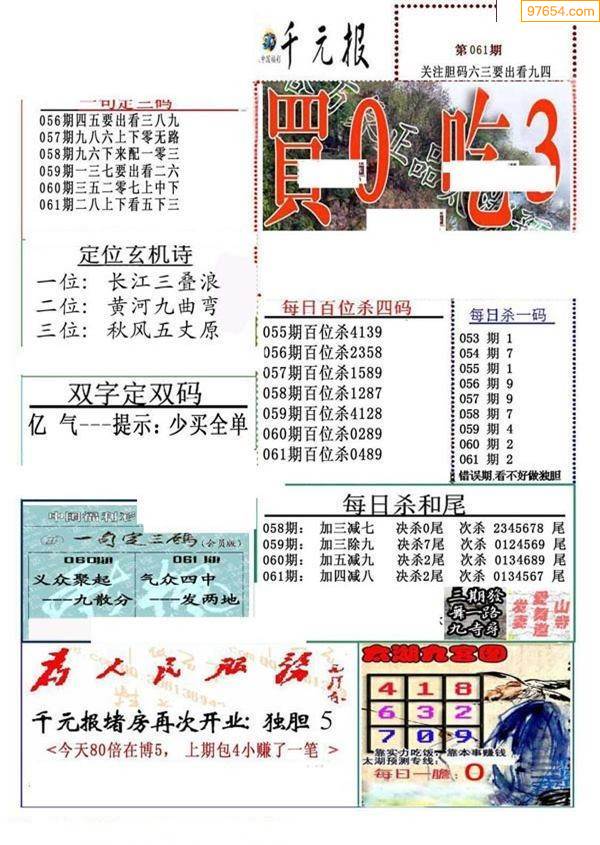 97654.com
千元报
第061期
关注胆码六三要出看九四
一句定三码
056期四五要出看三八九
057期九八六上下零无路
058期九六下来配一零三
059期一三七要出看二六
060期三五二零七上中下
061期二八上下看五下三
買0 吃3
定位玄机诗
一位: 长江三叠浪
二位: 黄河九曲弯
三位: 秋风五丈原
每日百位杀四码
055期百位杀4139
056期百位杀2358
057期百位杀1589
058期百位杀1287
059期百位杀4128
060期百位杀0289
061期百位杀0489
每日杀一码
053 期 1
054 期 7
055 期 1
056 期 9
057 期 9
058 期 7
059 期 4
060 期 2
061 期 2
错误期,看不好做独胆
双字定双码
亿 气---提示: 少买全单
每日杀和尾
058期: 加三减七 决杀0尾 次杀 2345678 尾
059期: 加三除九 决杀7尾 次杀 0124569 尾
060期: 加五减九 决杀2尾 次杀 0134569 尾
061期: 加四减八 决杀2尾 次杀 0134567 尾
一句定三码(会员版)
060期
义众聚起
---九散分
061期
气众四中
---发两地
三期發
第一路
九寺尋
山寺
為人民服務
千元报堵房再次开业: 独胆 5
<今天80倍在博5, 上期包4小赚了一笔 >
太湖九宫图
4 1 8
6 3 2
7 0 9
靠实力吃饭, 靠本事赚钱
太湖预测专线:
每日一胆: 0